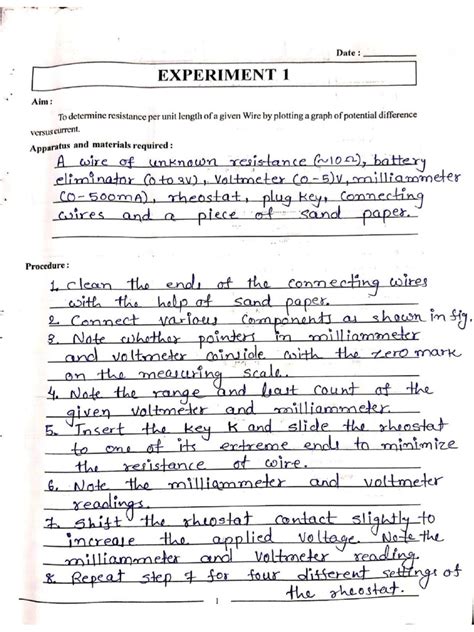 Date :
EXPERIMENT 1
Aim :
To determine resistance per unit length of a given Wire by plotting a graph of potential difference
versus current.
Apparatus and materials required :
A wire of unknown resistance (~10Ω), battery
eliminator (0 to 3V), Voltmeter (0-5)V, milliammeter
(0-500mA), rheostat, plug key, connecting
wires and a piece of sand paper.
Procedure :
1. Clean the ends of the connecting wires
with the help of sand paper.
2. Connect various components as shown in fig.
3. Note whether pointers in milliammeter
and voltmeter coinside with the zero mark
on the measuring scale.
4. Note the range and least count of the
given voltmeter and milliammeter.
5. Insert the key K and slide the rheostat
to one of its extreme ends to mimimize
the resistance of wire.
6. Note the milliammeter and voltmeter
readings.
7. Shift the rheostat contact slightly to
increase the applied voltage. Note the
milliammeter and voltmeter reading.
8. Repeat step 7 for four different settings of
the rheostat.
1